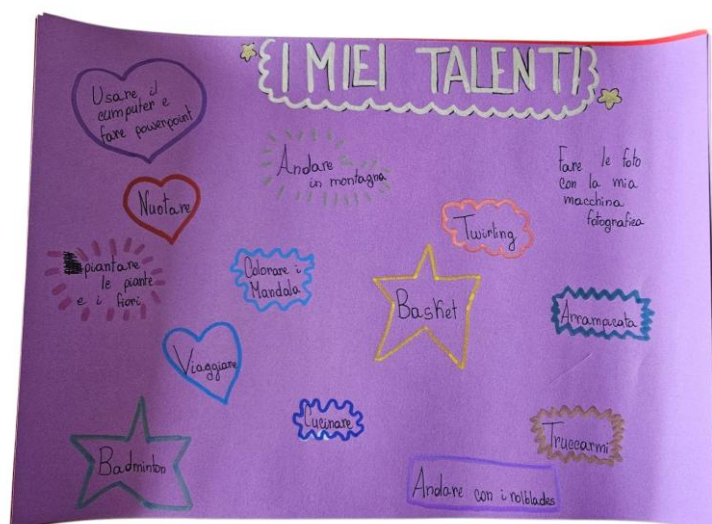 I MIEI TALENTI
Usare il
cumputer e
fare powerpoint
Andare
in montagna
Fare le foto
con la mia
macchina
fotografica
Nuotare
Twirling
piantare
le piante
e i fiori
Colorare i
Mandala
Basket
Arrampicata
Viaggiare
Cucinare
Truccarmi
Badminton
Andare con i rolblades